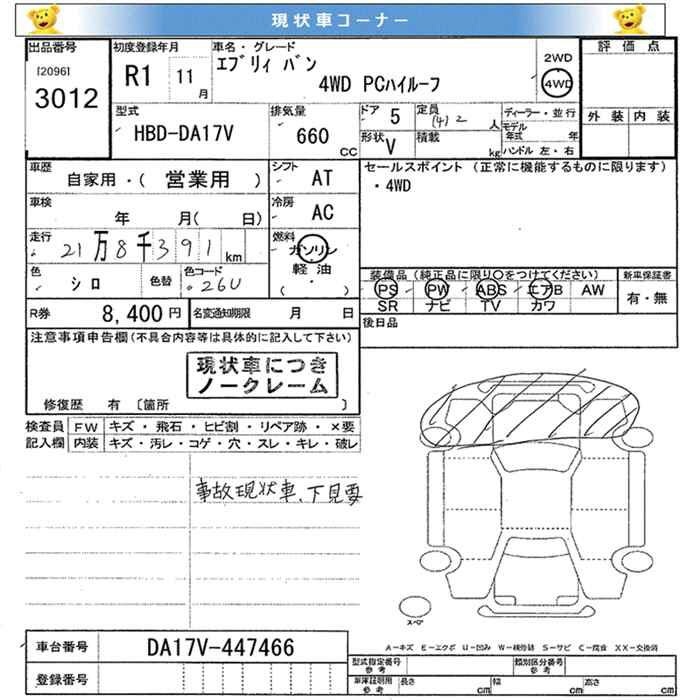 現状車コーナー
出品番号 初度登録年月 車名・グレード 評価点
[2096] 3012 R1 11 月 エブリィ バン 4WD PCハイルーフ 2WD 4WD
外装 内装
型式 排気量 ドア 5 定員 (4) 2 人 ディーラー・並行
HBD-DA17V 660 CC 形状 V 積載 kg モデル年式 年
ハンドル 左・右
車歴 シフト AT セールスポイント (正常に機能するものに限ります)
自家用・( 営業用 ) ・4WD
車検 年 月( 日) 冷房 AC
走行 21万8千391 km 燃料 ガソリン
軽油
( ・ )
色 シロ 色替 色コード 26U
装備品 (純正品に限り○をつけてください) 新車保証書
PS PW ABS エアB AW 有・無
SR ナビ TV カワ
R券 8,400円 名変通知期限 月 日 後日品
注意事項申告欄(不具合内容等は具体的に記入して下さい)
現状車につき
ノークレーム
修復歴 有 〔箇所 〕
検査員 FW キズ・飛石・ヒビ割・リペア跡・×要
記入欄 内装 キズ・汚レ・コゲ・穴・スレ・キレ・破レ
事故現状車、下見要
スペア
車台番号 DA17V-447466
A-キズ E-エクボ U-凹み W-補修跡 S-サビ C-腐食 XX-交換済
登録番号
型式指定番号 参考 類別区分番号 参考
車庫証明用 参考 長さ cm 幅 cm 高さ cm